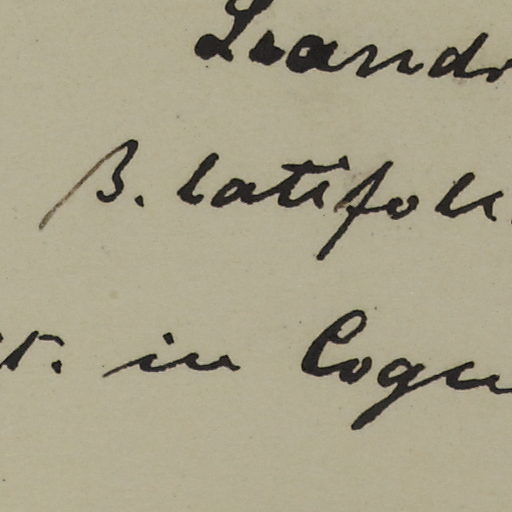 Leandr
β. latifoli
t. in Cogn